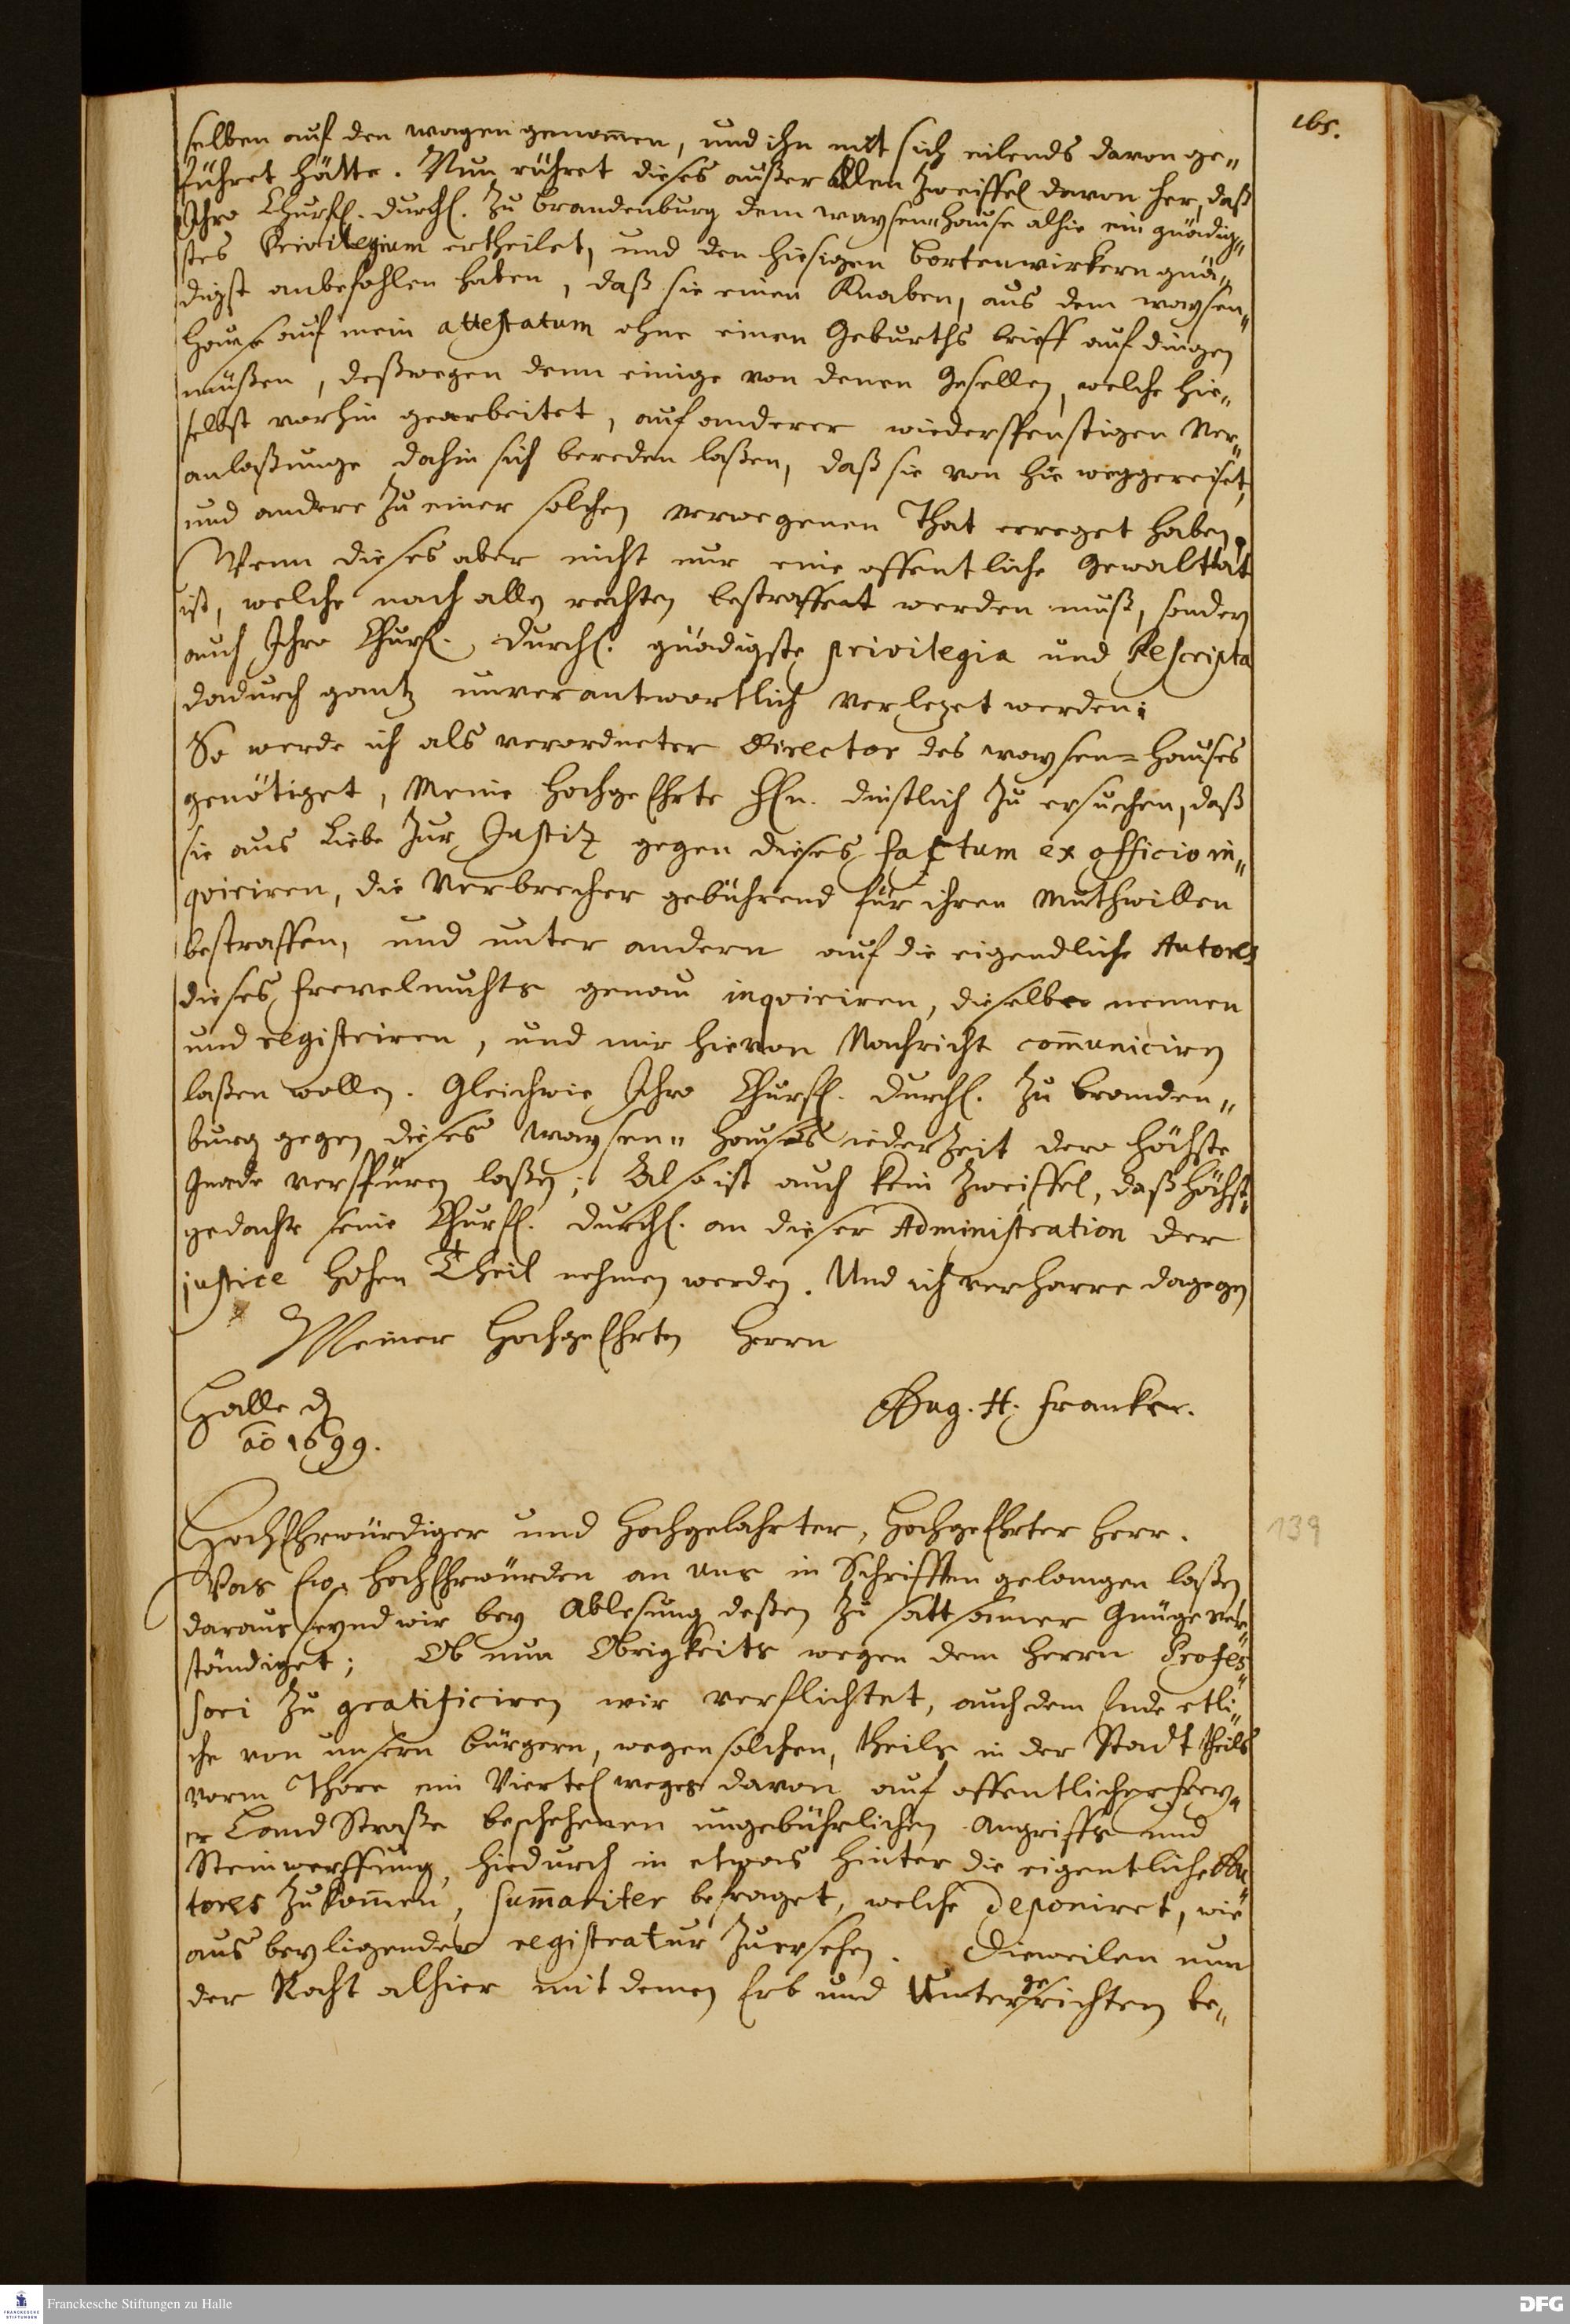 165.
selben auf den wagen genom̄en, und ihn mit sich eilends davon ge„
führet hätte. Nun rühret dieses außer allen Zweiffel davon her, daß
Ihro Churfl. Durchl. Zu brandenburg dem waysen„Hause alhie ein gnädig„
stes Privilegium ertheilet, und den hiesigen bortenwirkern gnä„
digst anbefohlen haben, daß sie einen Knaben, aus dem waysen„
Hause auf mein attestatum ohne einen Geburths brieff aufdingen
müßen, deßwegen denn einige von denen Gesellen, welche hie„
selbst vorhin gearbeitet, auf anderer wiederspenstigen Ver„
anlaßunge dahin sich bereden laßen, daß sie von hie weggereiset,
und andere Zu einer solchen verwegenen That erreget haben.
Wenn dieses aber nicht nur eine offentliche Gewaltthat
ist, welche nach allen rechten bestraffet werden muß, sondern
auch Ihro Churfl. Durchl. gnädigste privilegia und Rescripta
dadurch gantz unverantwortlich verlezet werden;
So werde ich als verordneter Director des waysen=Hauses
genötiget, Meine HochgeEhrte HEn. dinstlich Zu ersuchen, daß
sie aus Liebe Zur Justitz gegen dieses factum ex officio in„
qviriren, die Verbrecher gebührend für ihren Muthwillen
bestraffen, und unter andern auf die eigendliche Autores
dieses frevelmuths genau inqviriren, dieselben nennen
und registriren, und mir hiervon Nachricht com̄uniciren
laßen wollen. Gleichwie Ihro Churfl. Durchl. Zu branden„
burg gegen dieses Waysen„Hauses iederZeit dero höchste
Gnade verspüren laßen; Also ist auch kein Zweiffel, daß höchst„
gedacht seine Churfl. Durchl. an dieser Administration der
justice hohen Theil nehmen werden. Und ich verharre dagegen
Meiner HochgeEhrten Herrn
Halle d
ao 1699.
Aug. H. Francke.
HochEhrwürdiger und Hochgelahrter, HochgeEhrter Herr.
139
Was Ew. HochEhrwürden an uns in Schrifften gelangen laßen
daraus seynd wir bey Ablesung deßen Zu sattsamer Gnüge ver„
ständiget; Ob nun Obrigkeits wegen dem Herrn Profes„
sori Zu gratificiren wir verflichtet, auch dem Ende etli„
che von unsern bürgern, wegen solchen, theils in der Stadt theils
vorm Thore ein Viertel weges davon auf offentlicher frey„
er LandStraße beschehenen ungebührlichen Angriffs und
Steinwerffung, hiedurch in etwas hinter die eigentliche Au„
tores Zukom̄en, sum̄ariter befraget, welche deponiret, wie
aus beyligender registratur Zuersehen. Dieweilen nun
der Racht alhier mit denen Erb und Untergerichten be„
Franckesche Stiftungen zu Halle
FRANCKESCHE STIFTUNGEN
DFG